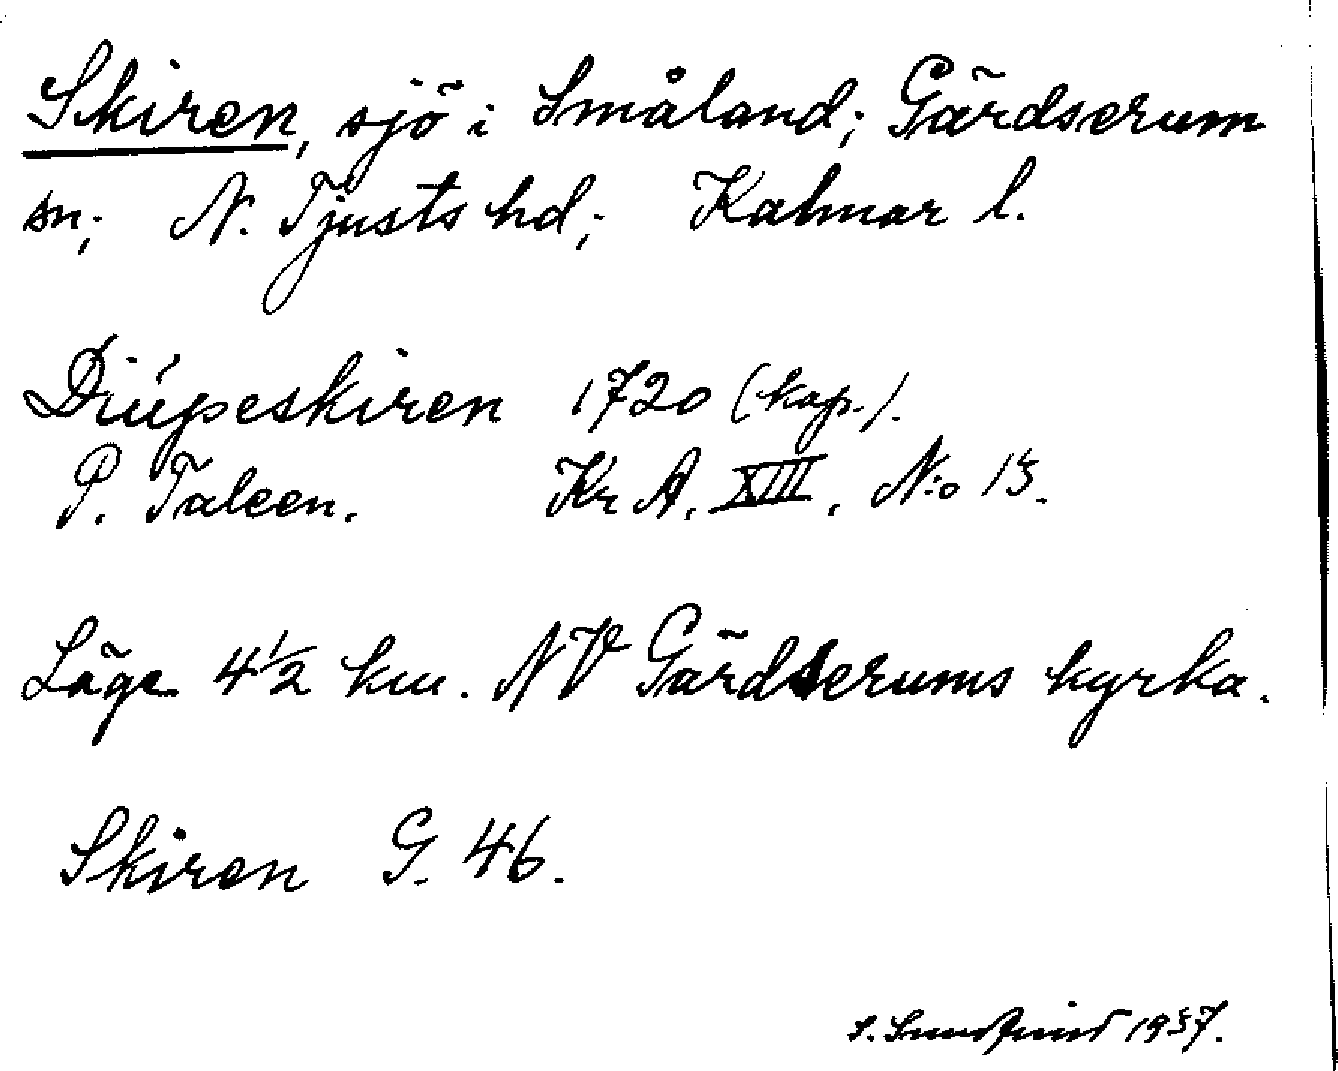 Skiren, sjö i Småland; Gärdserum
sn; N. Tjusts hd; Kalmar l.
Diúpeskiren 1720 (kap.).
P. Taleen. Kr A. XIII. N:o 15.
Läge 4 1/2 km. NV Gärdserums kyrka.
Skiren G. 46.
S. 1937.